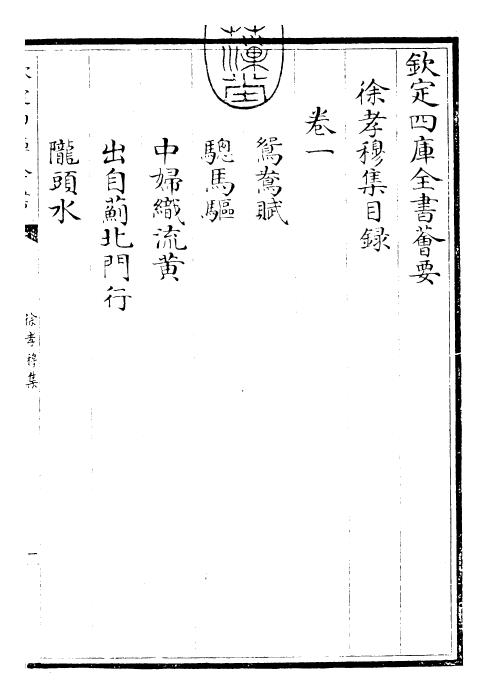 欽定四庫全書薈要
徐孝穆集目録
卷一
鴛鴦賦
驄馬驅
中婦織流黄
出自薊北門行
隴頭水
徐孝穆集
一